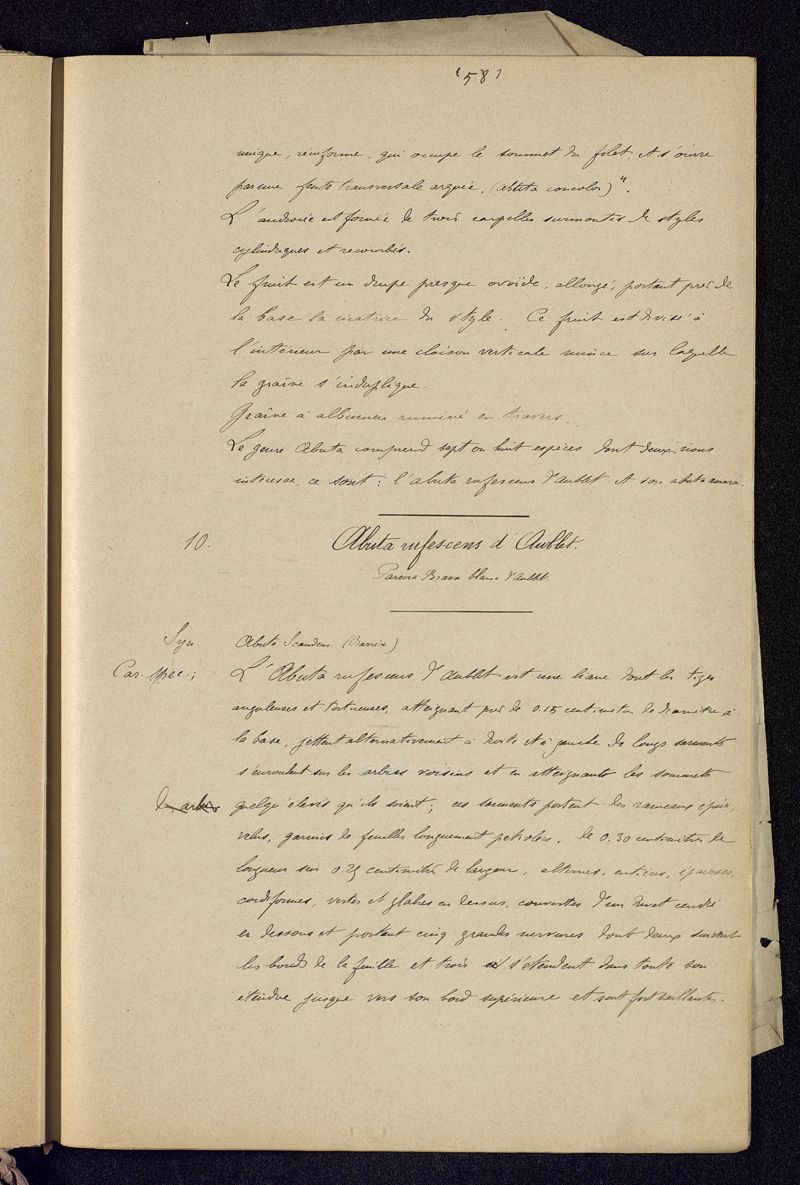 (58)
unique, reniforme, qui occupe le sommet du filet et s'ouvre
par une fente transversale arquée. (Abuta concolor)".
L'androcée est formée de trois carpelles surmontés de styles
cylindriques et recourbés.
Le fruit est un drupe presque ovoïde, allongé, portant près de
la base la cicatrice du style. Ce fruit est divisé à
l'intérieur par une cloison verticale mince sur laquelle
la graine s'induplique.
Graine à albumen ruminé en travers.
Le genre Abuta comprend sept ou huit espèces dont deux nous
intéresse, ce sont: l'abuta rufescens d'Aublet et son abuta amara.
10. Abuta rufescens d'Aublet.
Pareira Brava blanc d'Aublet.
Syn. Abuta Scandens (Barrère)
Car. spec.; L'Abuta rufescens d'Aublet est une liane dont les tiges
anguleuses et tortueuses, atteignant près de 0.15 centimètres de diamètre à
la base, jettent alternativement à droite et à gauche de longs sarments
s'enroulant sur les arbres voisins et en atteignants les sommets
quelqu'élevés qu'ils soient; ces sarments portent des rameaux épais,
velus, garnis de feuilles longuement pétiolées, de 0.30 centimètres de
longueur sur 0.25 centimètres de largeur, alternes, entières, épaisses,
cordiformes, vertes et glabres en dessus, couvertes d'un duvet cendré
en dessous et portant cinq grandes nervures dont deux suivent
les bords de la feuille et trois s'étendent dans toute son
étendue jusque vers son bord supérieure et sont fort saillantes.